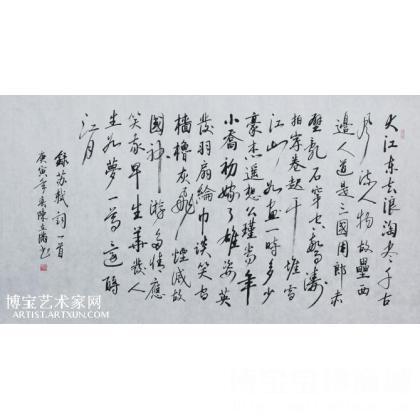 大江东去浪淘尽千古
风流人物故垒西
边人道是三國周郎赤
壁乱石穿空驚濤
拍岸卷起千堆雪
江山如画一時多少
豪杰遥想公瑾當年
小喬初嫁了雄姿英
发羽扇綸巾谈笑间
檣櫓灰飛煙滅故
國神游多情應
笑我早生華发人
生如夢一尊還酹
江月
錄苏軾詞一首
庚寅年
博宝艺术家网
ARTIST.ARTXUN.COM